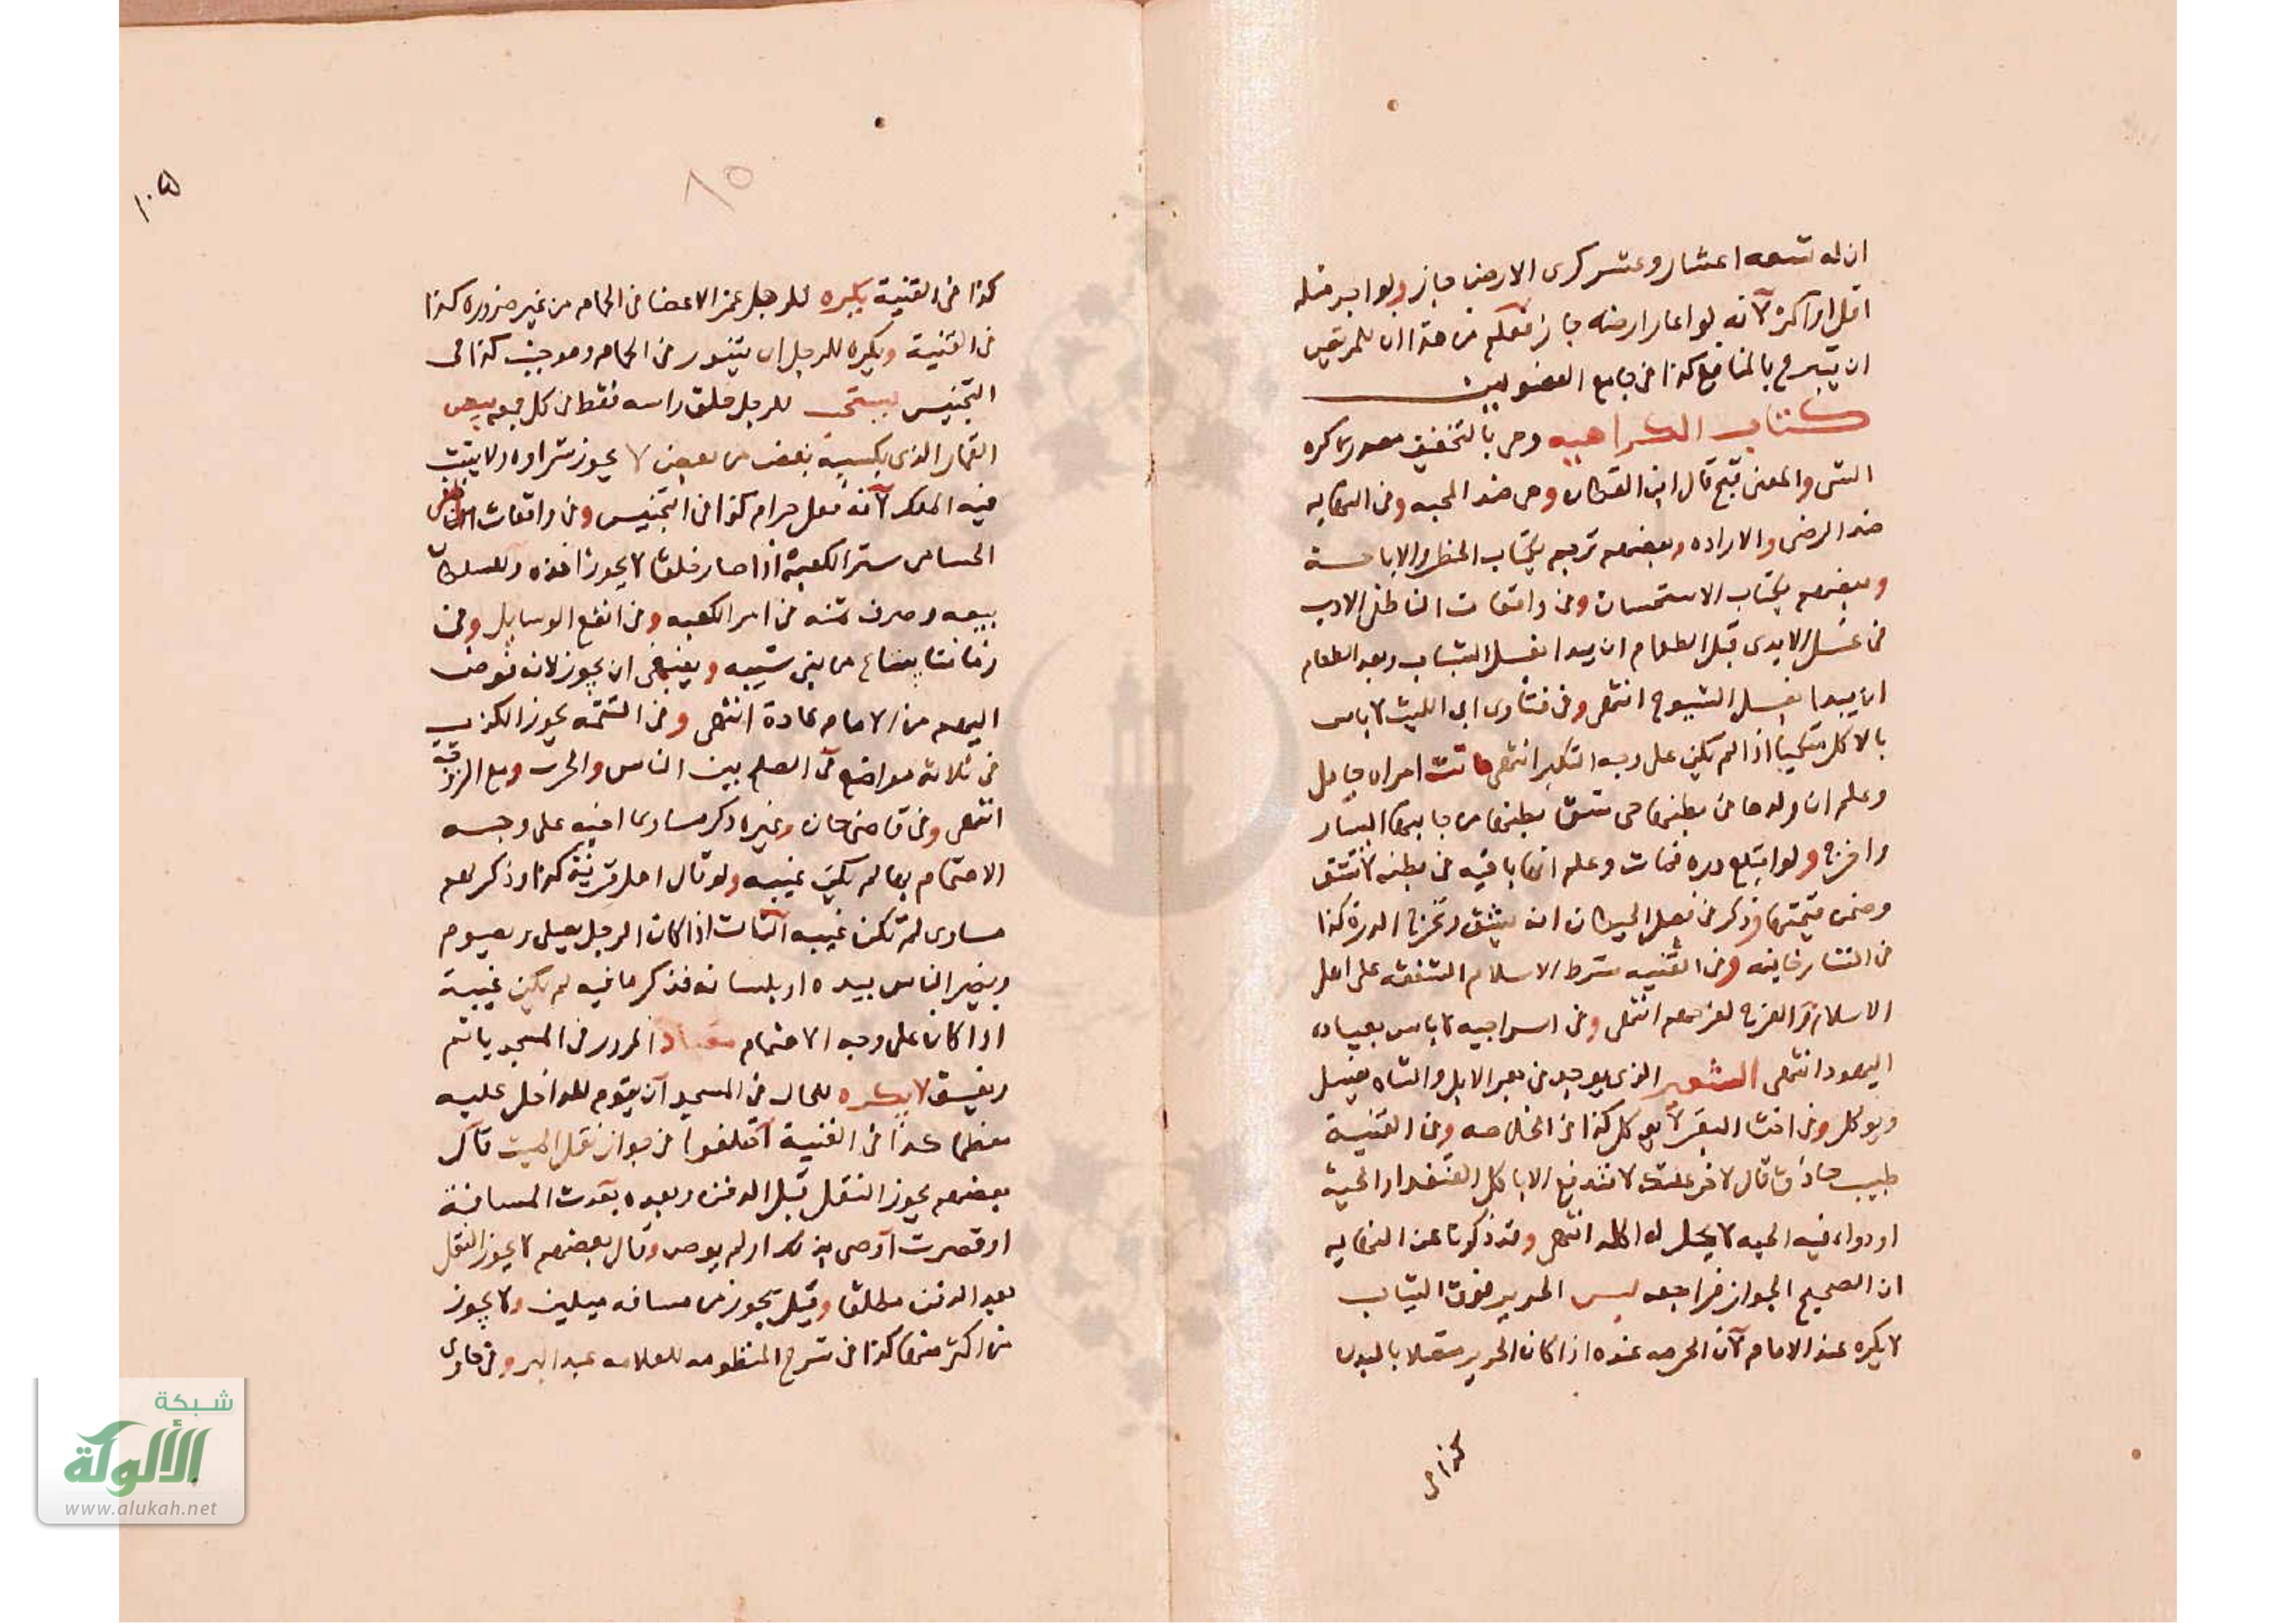 ان له تسعه اعشار وعشر كرى الارض جاز ولو اجر مثله
اقل او اكثر لانه لو اعار ارضه جاز فعلم من هذا ان للمريض
ان يتبرع بالمنافع كذا فى جامع الفصولين
كتاب الكراهيه وهى بالتخفيف مصدر كره
الشى والمعنى قبح قال ابن القطان وهى ضد المحبه وفى النهايه
ضد الرضى والاراده وبعضهم ترجم بكتاب الحظر والاباحة
وبعضهم بكتاب الاستحسان وفى واقعات الناطفى الادب
فى غسل الايدى قبل الطعام ان يبدا بغسل الشباب وبعد الطعام
ان يبدا بغسل الشيوخ انتهى وفى فتاوى ابى الليث لا باس
بالاكل متكيا اذا لم يكن على وجه التكبر انتهى ماتت امراه حامل
وعلم ان ولدها فى بطنها حى شق بطنها من جانبها اليسار
واخرج ولو ابتلع دره فمات وعلم انها باقيه فى بطنه لا تشق
وضمن قيمتها وذكر فى فصل الحيطان انه يشق وتخرج الدرة كذا
فى التتارخانيه وفى القنيه شرط الاسلام الشفقه على اهل
الاسلام والفرح لفرحهم انتهى وفى السراجيه لا باس بعياده
اليهود انتهى الشعير الذى يوجد فى بعر الابل والشاه يغسل
ويوكل وفى اخثا البقر لا يوكل كذا فى الخلاصه وفى القنية
طبيب حاذق قال لاخر علتك لا تندفع الا باكل القنفد او الحية
او دواء فيه الحيه لا يحل له اكله انتهى وقد ذكرنا عن النهايه
ان الصحيح الجواز فراجعه لبس الحرير فوق الثياب
لا يكره عند الامام لان الحرمه عنده اذا كان الحرير متصلا بالبدن
كذا فى
١٠٥
٨٥
كذا فى القنية يكره للرجل غمز الاعضا فى الحمام من غير ضروره كذا
فى القنية ويكره للرجل ان يتنور فى الحمام وهو جنب كذا فى
التجنيس يستحب للرجل حلق راسه فقط فى كل جمعه بيض
القمار الذى يكسبه بعض من بعض لا يجوز شراوه ولا يثبت
فيه الملك لانه فعل حرام كذا فى التجنيس وفى واقعات الناطفى
الحسامى ستر الكعبة اذا صار خلقا لا يجوز اخذه وللسلطان
بيعه وصرف ثمنه فى امر الكعبه وفى انفع الوسايل وفى
زماننا يبتاع من بنى شيبه وينبغى ان يجوز لانه فوض
اليهم من الامام عادة انتهى وفى التتمه يجوز الكذب
فى ثلاثه مواضع فى الصلح بين الناس والحرب ومع الزوجة
انتهى وفى قاضى خان وغيره ذكر مساوى اخيه على وجه
الاهتمام بها لم يكن غيبه ولو قال اهل قرية كذا وذكر لهم
مساوى لم تكن غيبه الثالث اذا كان الرجل يصلى ويصوم
ويضر الناس بيده او بلسانه فذكر ما فيه لم يكن غيبة
اذا كان على وجه الاهتمام معتاد المرور فى المسجد ياثم
ويفسق لا يكره للجالس فى المسجد ان يقوم للداخل عليه
معظما كذا فى القنية اختلفوا فى جواز نقل الميت قال
بعضهم يجوز النقل قبل الدفن وبعده بعدت المسافة
او قصرت اوصى بذلك او لم يوص وقال بعضهم لا يجوز النقل
بعد الدفن مطلقا وقيل يجوز من مسافه ميلين ولا يجوز
فى اكثر منها كذا فى شرح المنظومه للعلامه عبد البر وفى حاوى
شبكة
الألوكة
www.alukah.net